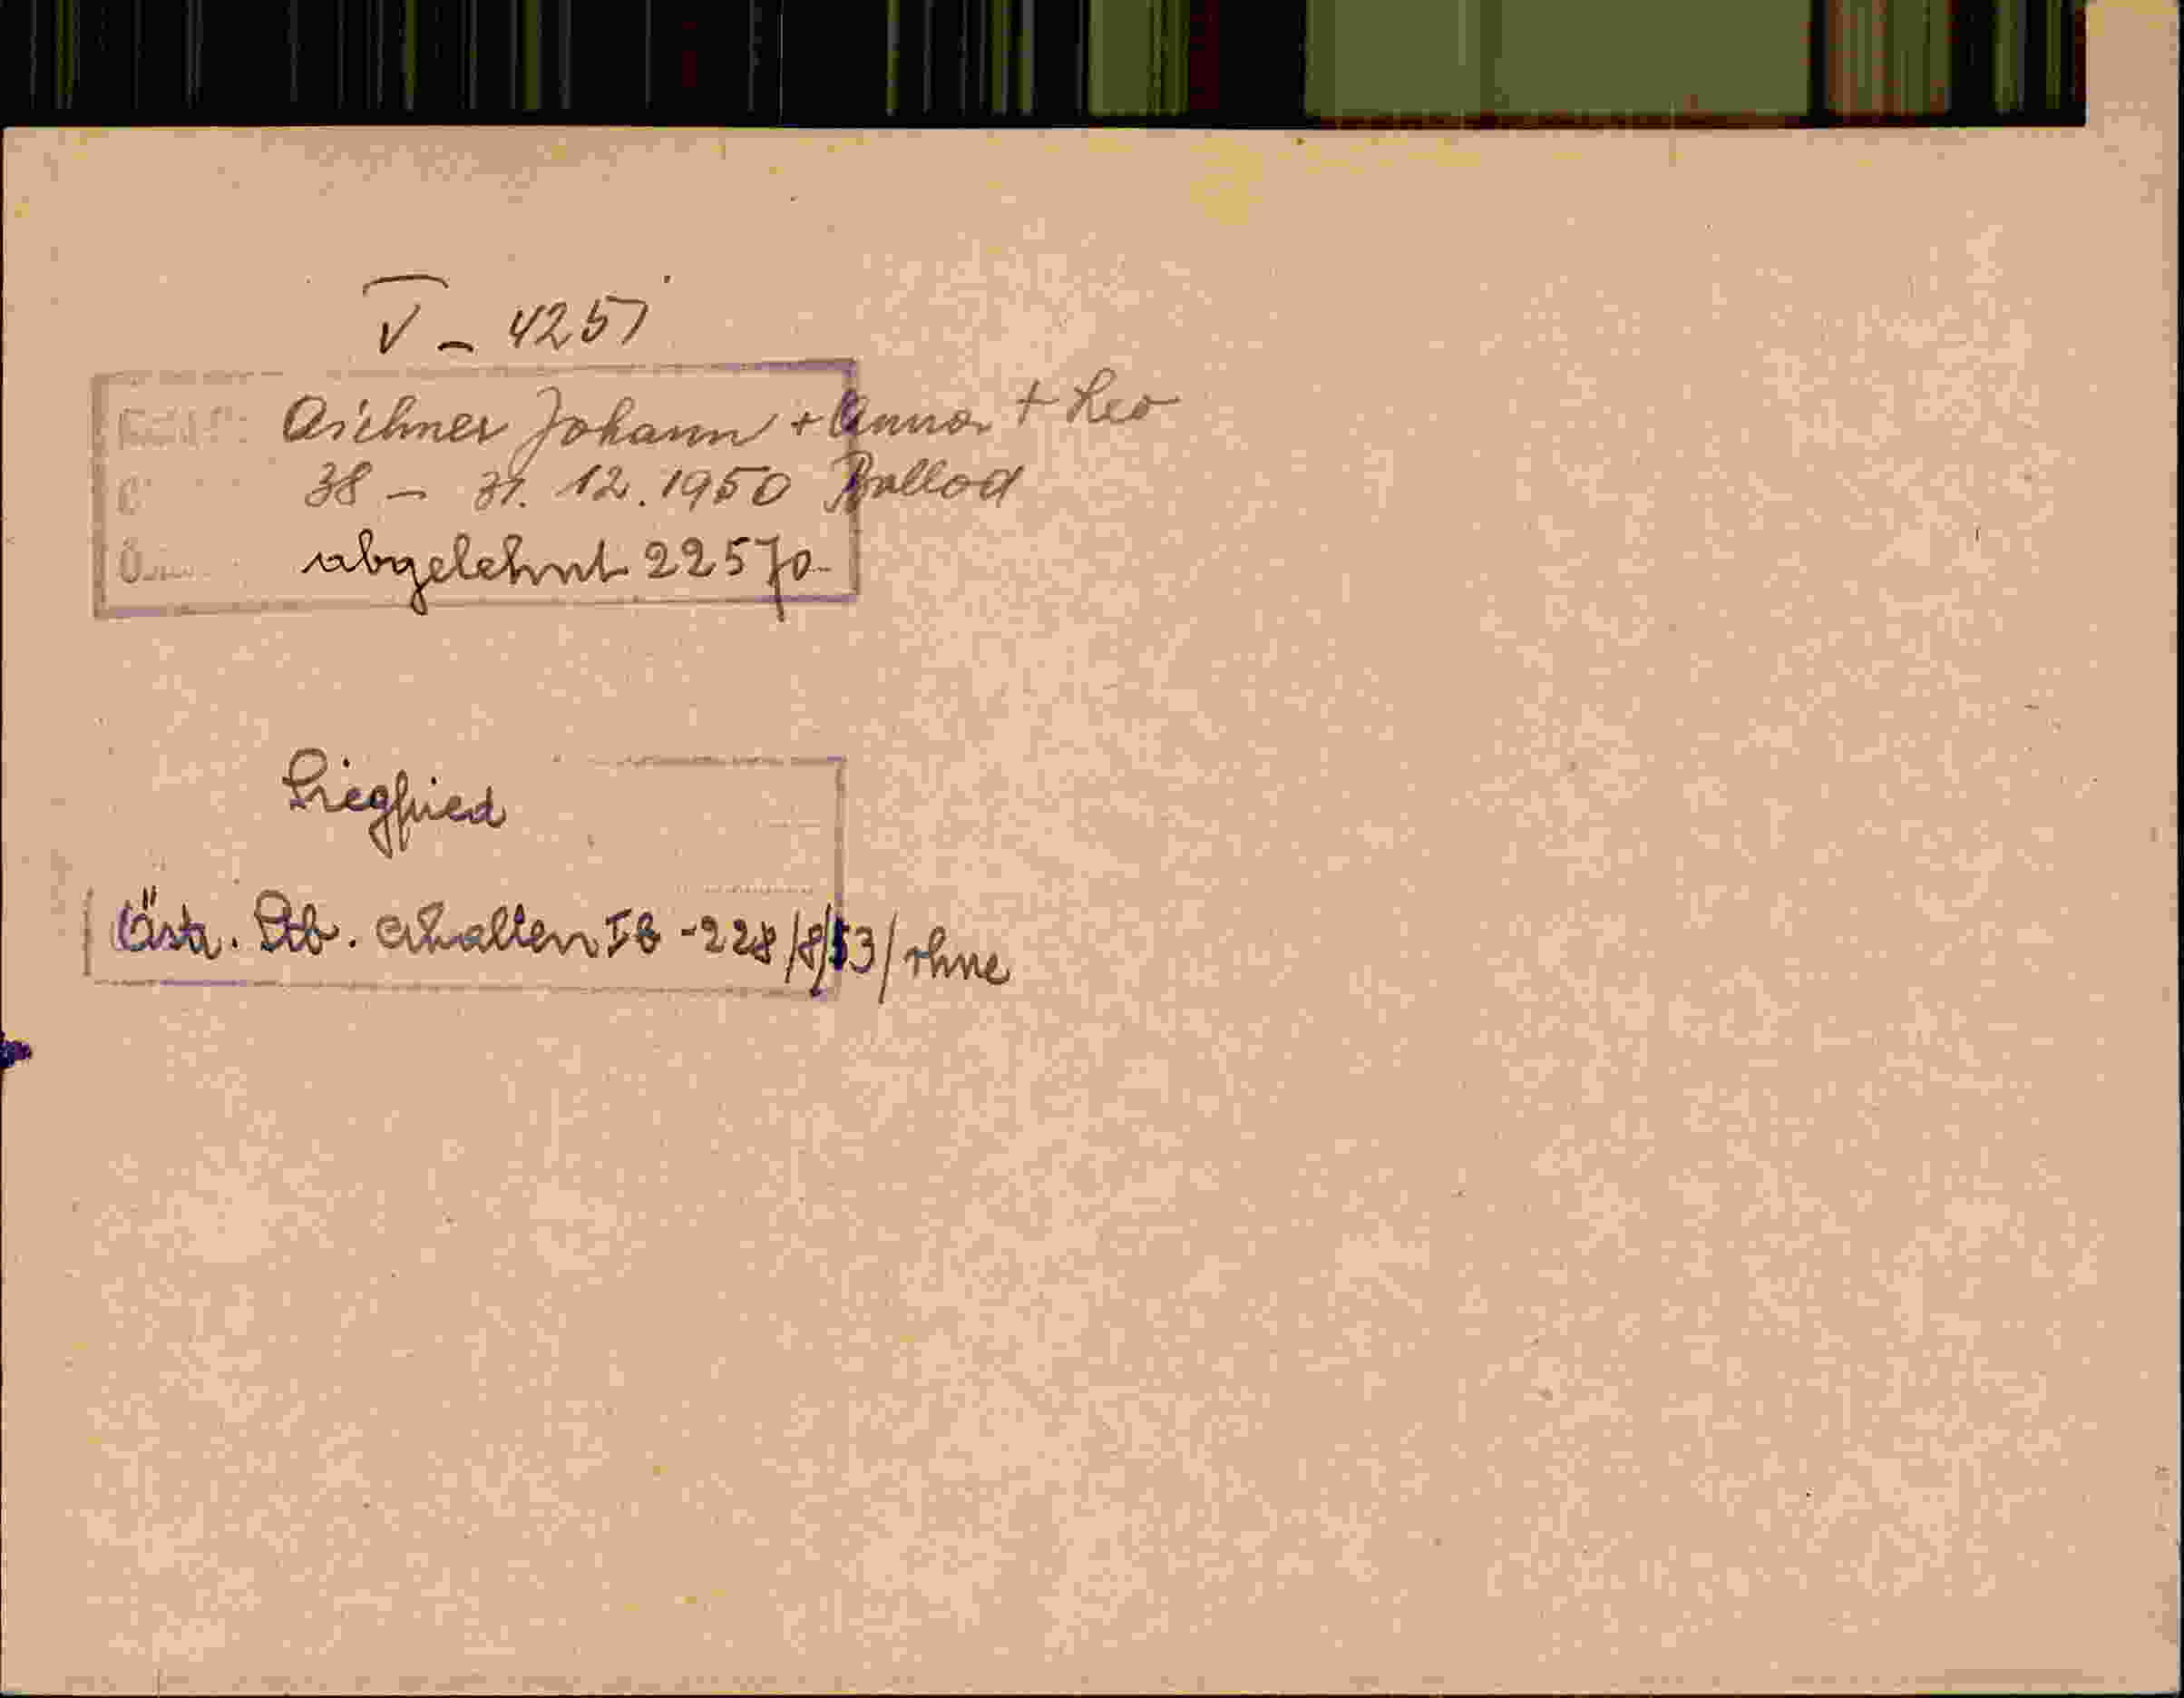 V - 4257
Aichner Johann + Anna + Leo
38 - 31. 12. 1950
abgelehnt 22570
Siegfried
Östr. Stb. erhalten IB - 228/8/53/